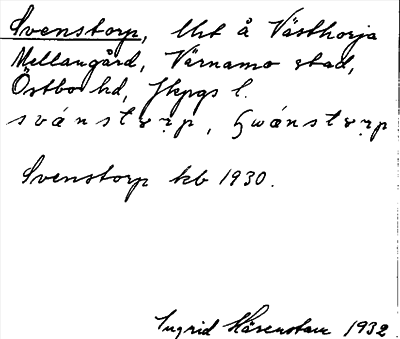 Svenstorp, Uht å Västhorja
Mellangård, Värnamo stad,
Östbo hd, Jkpgs l.
svánstorp, swánstorp
Svenstorp kb 1930.
Ingrid Hårenstam 1932